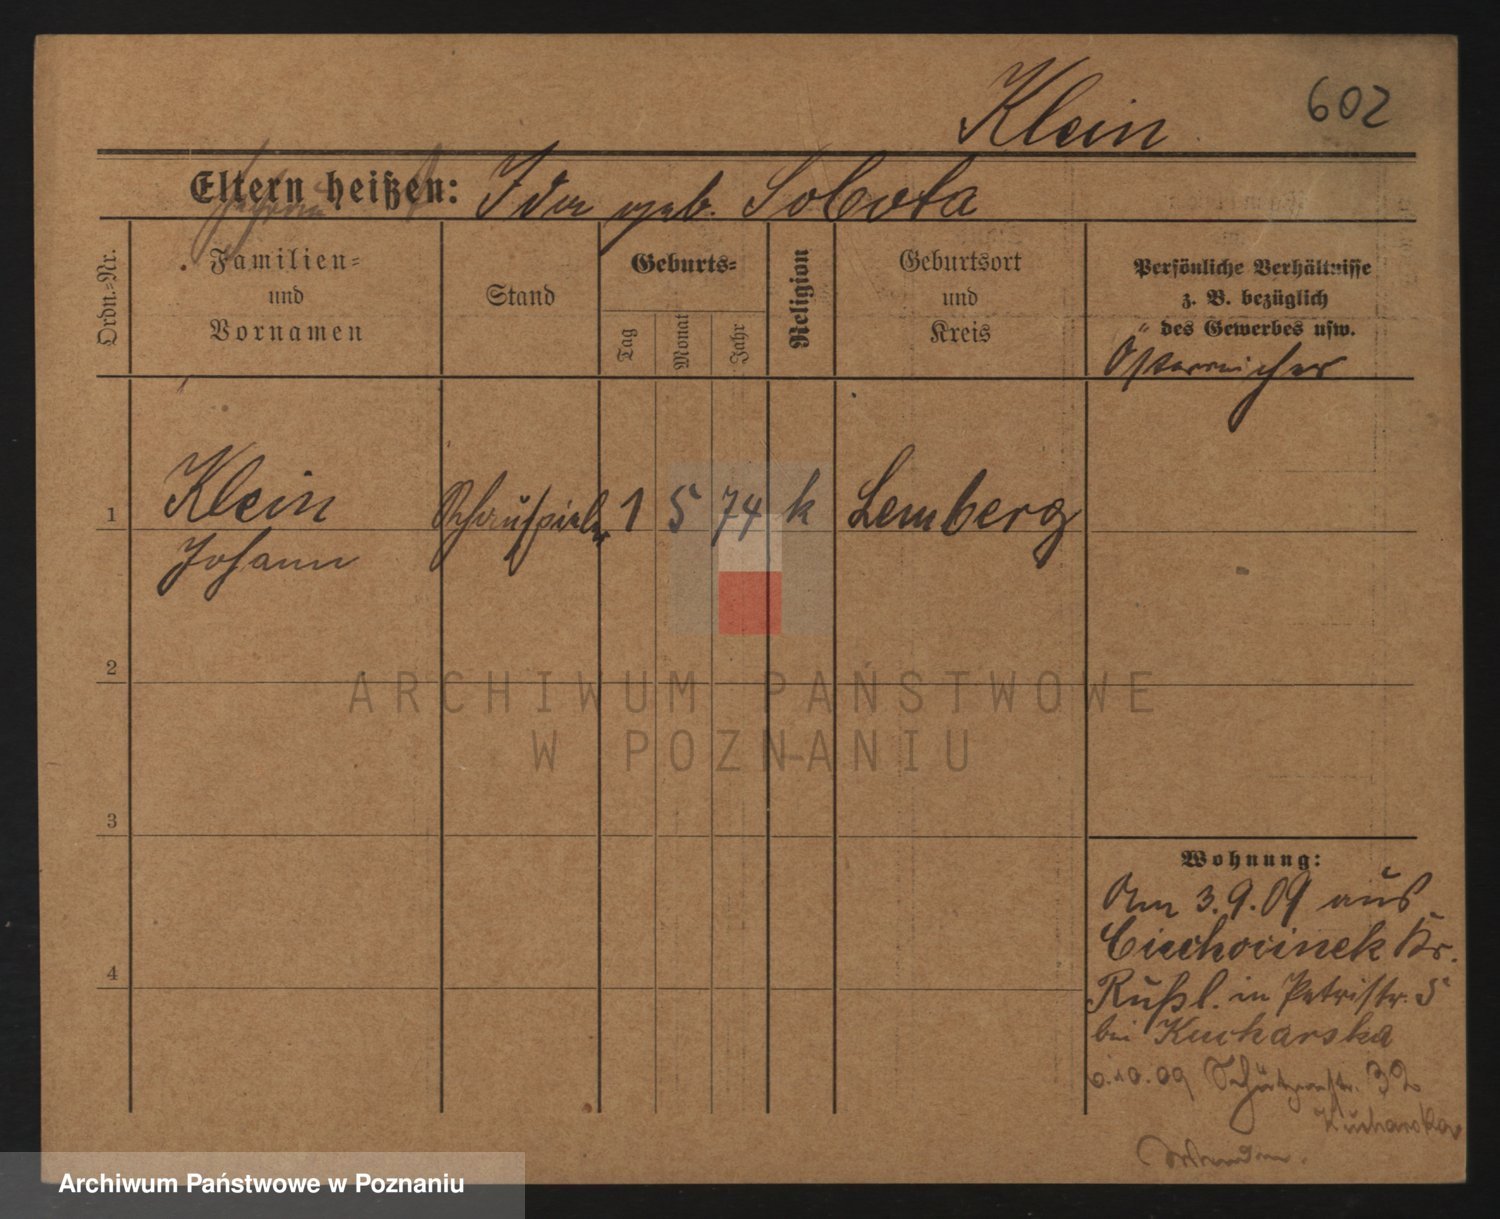 Klein 602
Eltern heißen: Ida geb. Sobota
Ordn.-Nr.
Familien-
und
Vornamen
Stand
Geburts-
Tag
Monat
Jahr
Religion
Geburtsort
und
Kreis
Persönliche Verhältnisse
z. B. bezüglich
des Gewerbes usw.
Österreicher
1 Klein Schauspieler 1 5 74 k Lemberg
Johann
2
3
4
Wohnung:
Am 3.9.09 aus
Ciechocinek Kr.
Rußl. in Petristr. 5
bei Kucharska
10.09 Schützenstr. 32
Kucharska
ARCHIWUM PAŃSTWOWE
W POZNANIU
Archiwum Państwowe w Poznaniu